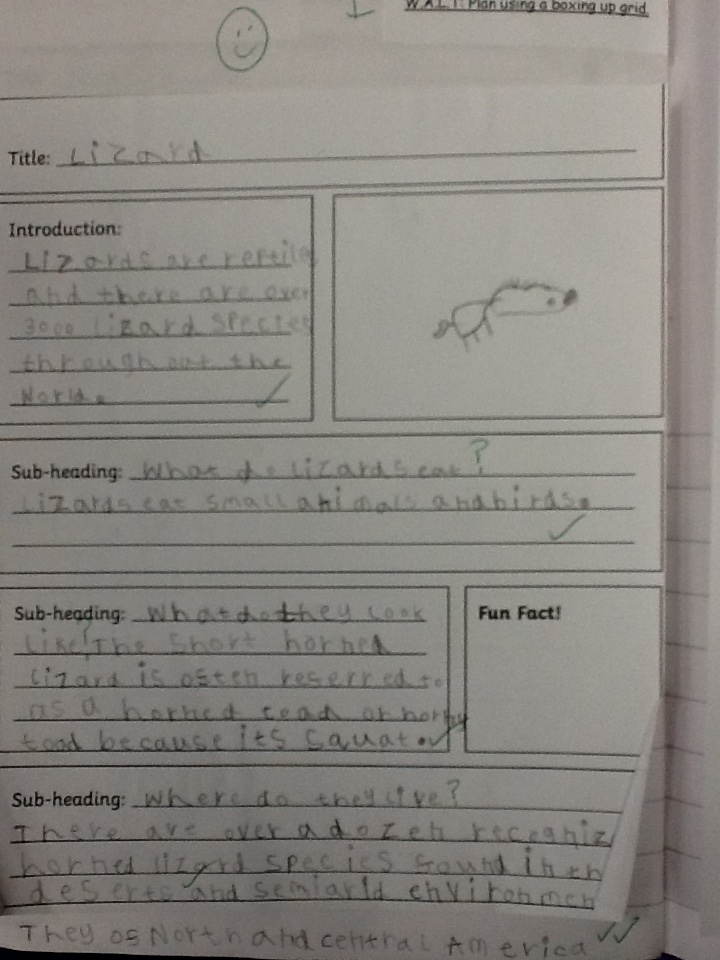 W.A.L.T: Plan using a boxing up grid
Title: Lizard
Introduction:
Lizards are reptile
and there are over
3000 lizard species
through out the
World.
Sub-heading: What do lizards eat?
Lizards eat small animals and birds.
Sub-heading: What do they look
like? The Short horned
Lizard is osten reserred to
as a horned toad or horny
toad because its squat.
Fun Fact!
Sub-heading: Where do they live?
There are over a dozen recogniz
horned lizard species sound in th
deserts and semiarid environmen
They os North and central America